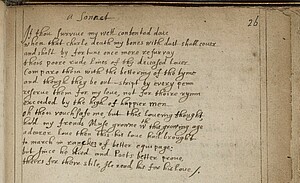 A Sonnet
26
If thou survive my well contented daie
when that churle death my bones with dust shall cover
and shalt by fortune once more resurvay
these poore rude lines of thy deceased lover
Compare them with the bettering of the tyme
and though they be out-stript by every pen
reserve them for my love, not for their rymn
exceeded by the hight of happier men
oh then vouchsafe me but this loveing thought
had my freinds Muse growne wth the growing age
a dearer love then this his love had brought
to march in ranckes of better equipage.
but since he died and Poets better prove,
theires for there stile, Ile read his for his love